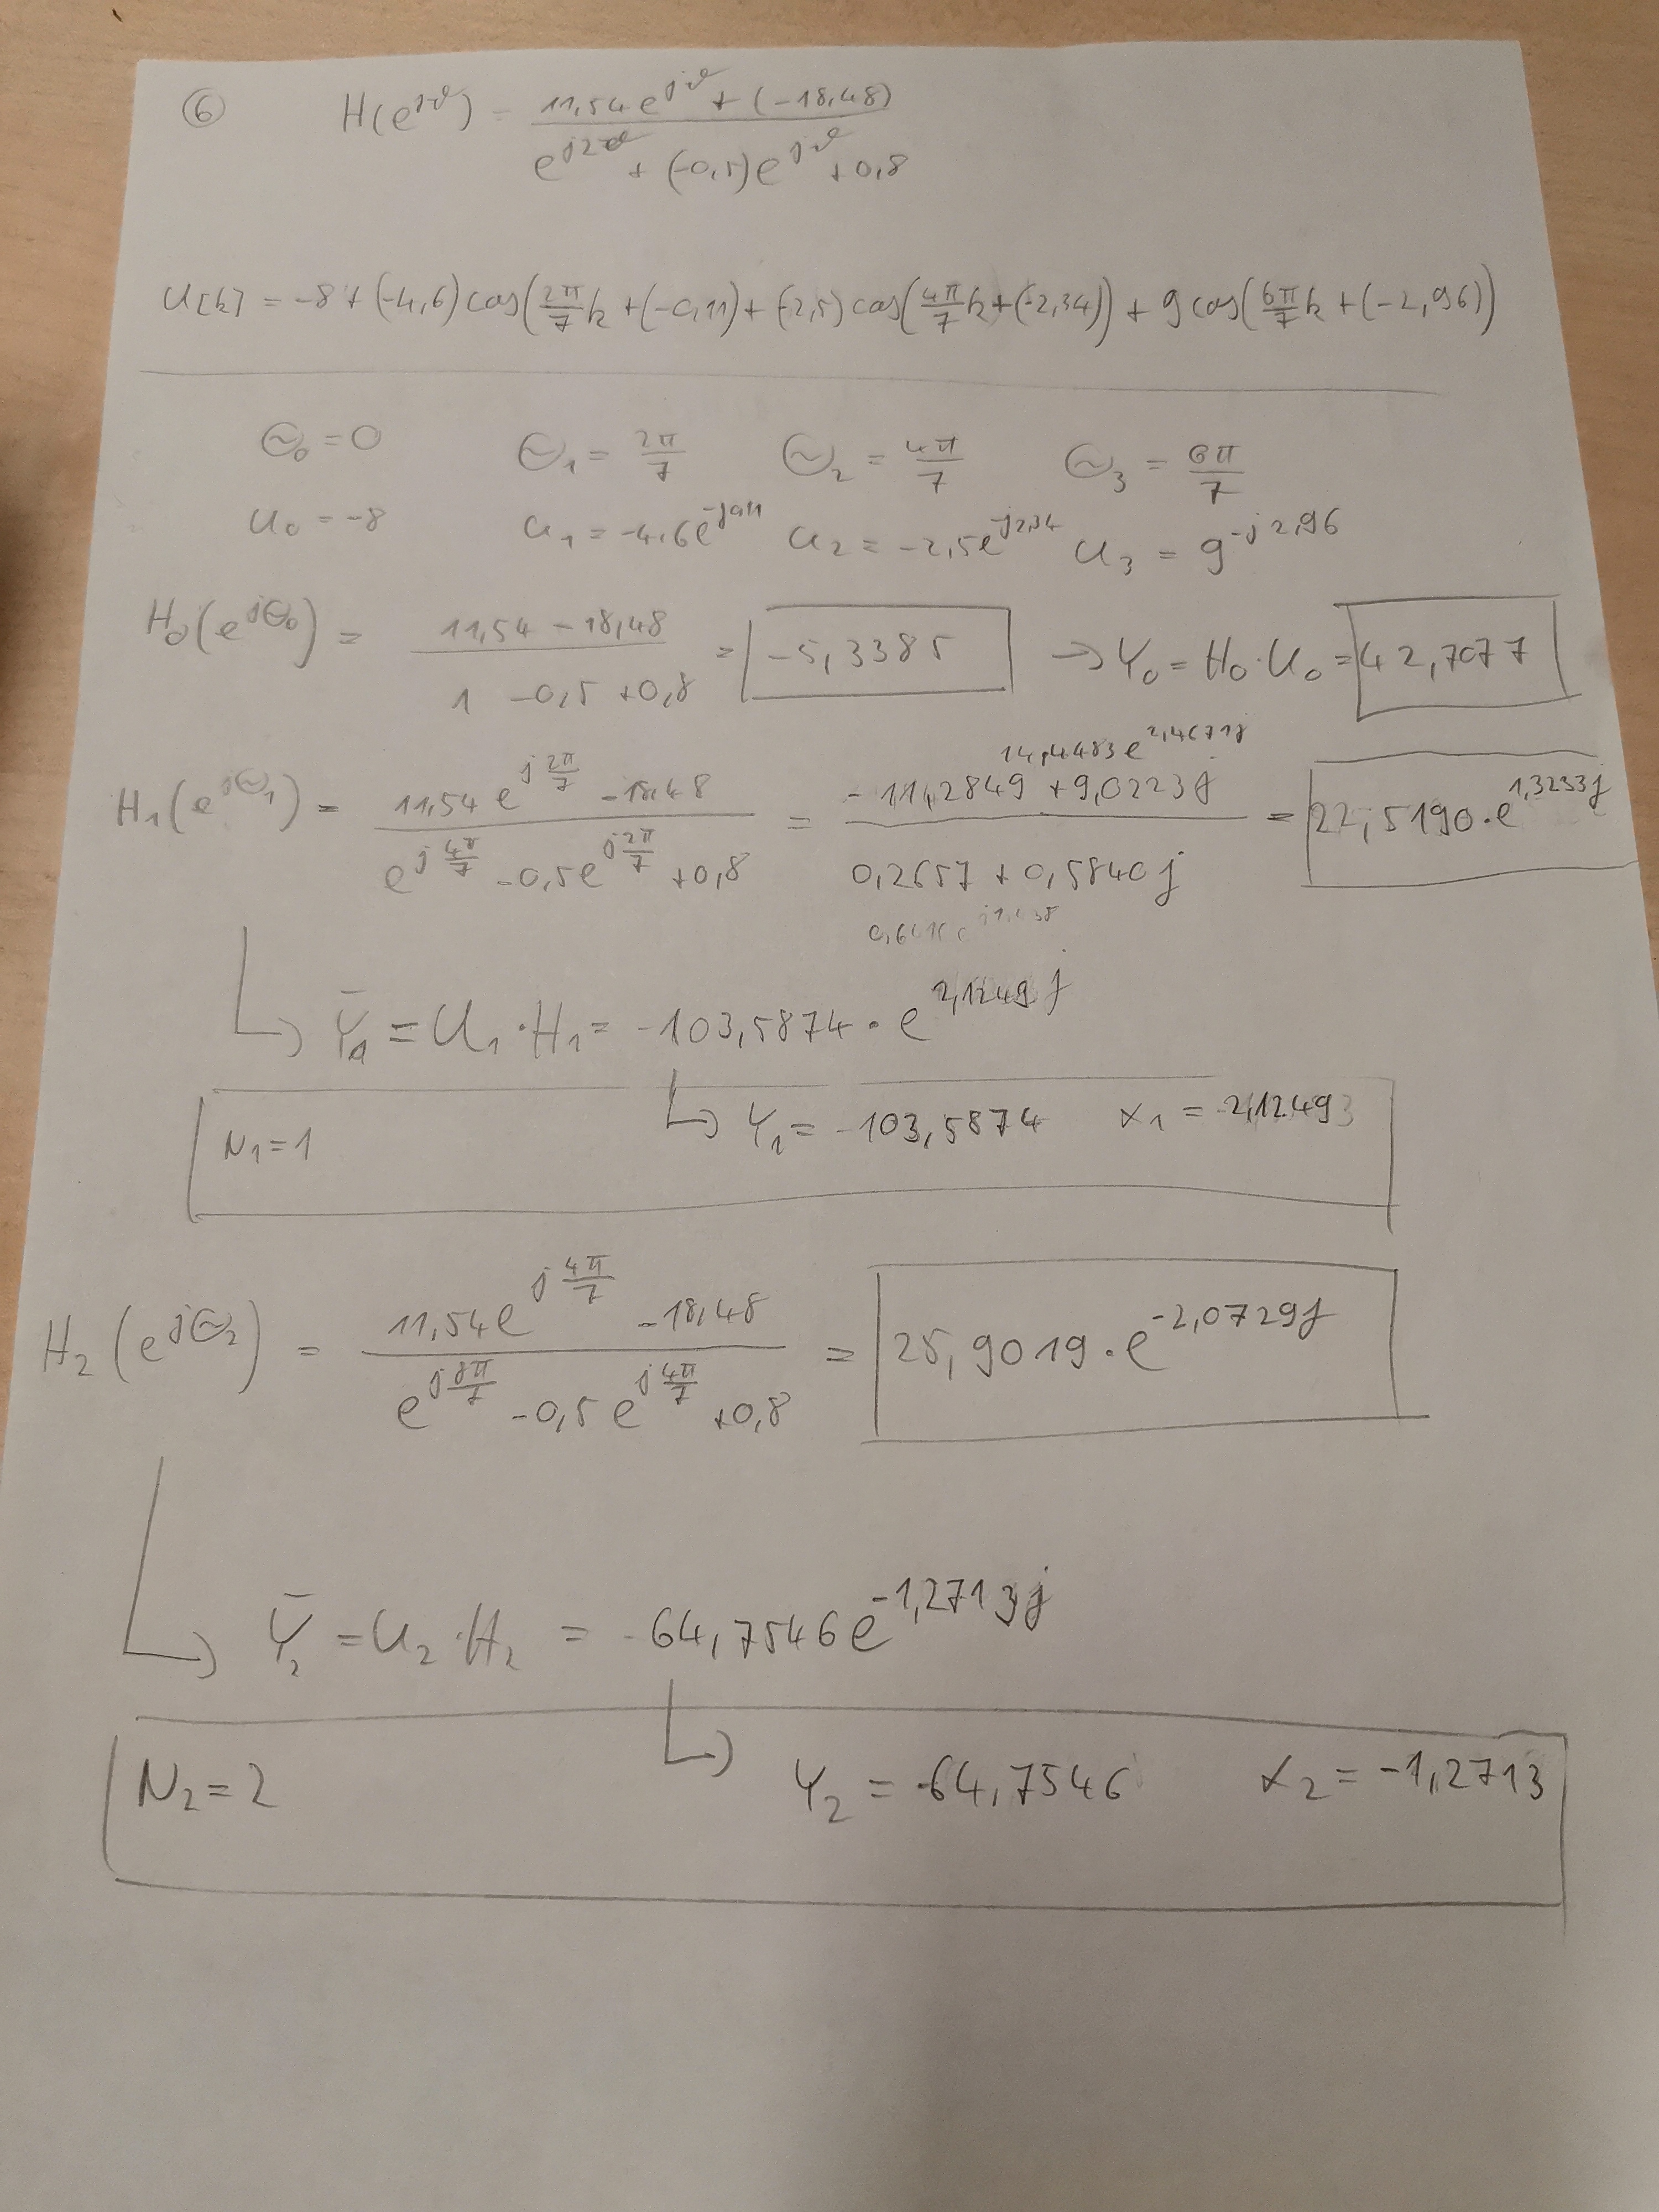 ⑥ H(e^jϑ) = (11,54 e^jϑ + (-18,48)) / (e^j2ϑ + (-0,5)e^jϑ + 0,8)
u[k] = -8 + (-4,6) cos(2π/7 k + (-0,11) + (-2,5) cos(4π/7 k + (-2,34)) + 9 cos(6π/7 k + (-2,96))
Θ₀ = 0 Θ₁ = 2π/7 Θ₂ = 4π/7 Θ₃ = 6π/7
U₀ = -8 U₁ = -4,6e^-j0,11 U₂ = -2,5e^-j2,34 U₃ = 9^-j2,96
H₀(e^jΘ₀) = (11,54 - 18,48) / (1 - 0,5 + 0,8) = -5,3385 → Y₀ = H₀·U₀ = 42,7077
14,4483 e^2,4671j
H₁(e^jΘ₁) = (11,54 e^j2π/7 - 18,48) / (e^j4π/7 - 0,5e^j2π/7 + 0,8) = (-11,2849 + 9,0223j) / (0,2657 + 0,5840j) = 22,5190·e^1,3233j
↳ Ȳ₁ = U₁·H₁ = -103,5874·e^2,1249j
N₁ = 1 ↳ Y₁ = -103,5874 α₁ = 2,12493
H₂(e^jΘ₂) = (11,54e^j4π/7 - 18,48) / (e^j8π/7 - 0,5e^j4π/7 + 0,8) = 25,9019·e^-2,0729j
↳ Ȳ₂ = U₂·H₂ = -64,7546e^-1,2713j
N₂ = 2 ↳ Y₂ = -64,7546 α₂ = -1,2713